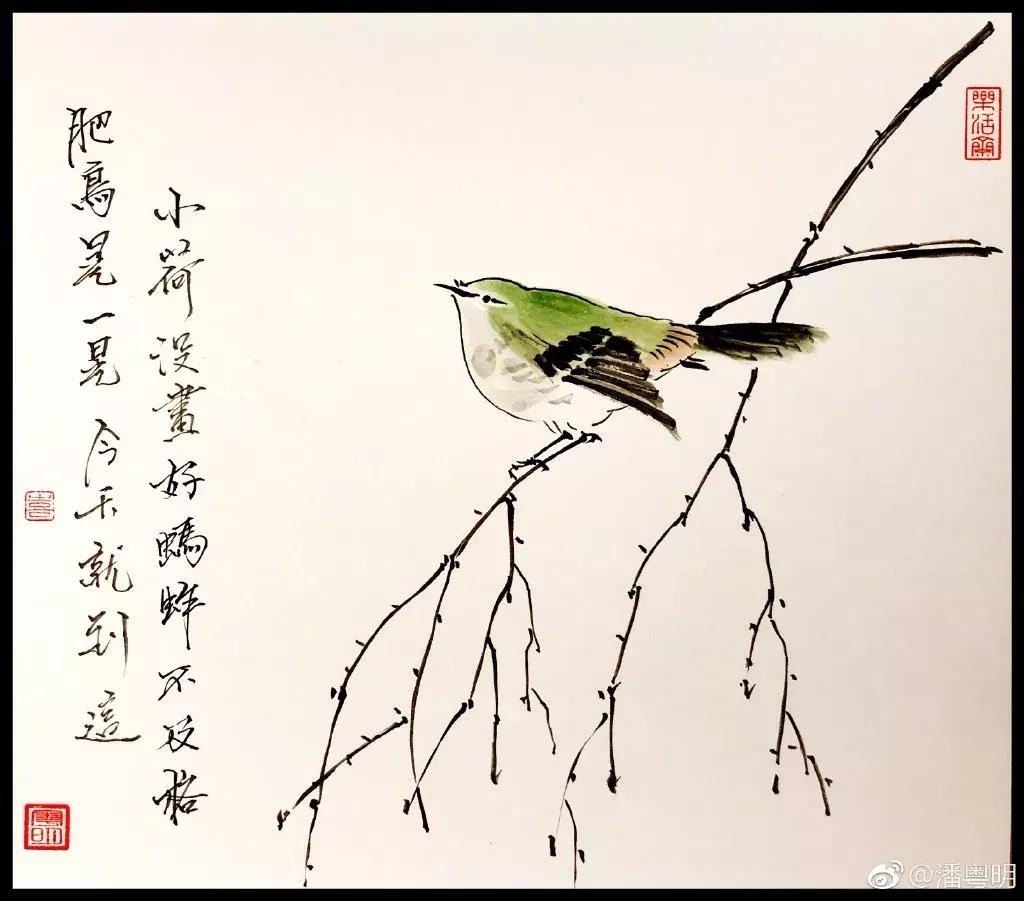 小荷没畫好螞蚱不及格
肥鳥晃一晃 今天就到這
樂活齋
@潘粤明